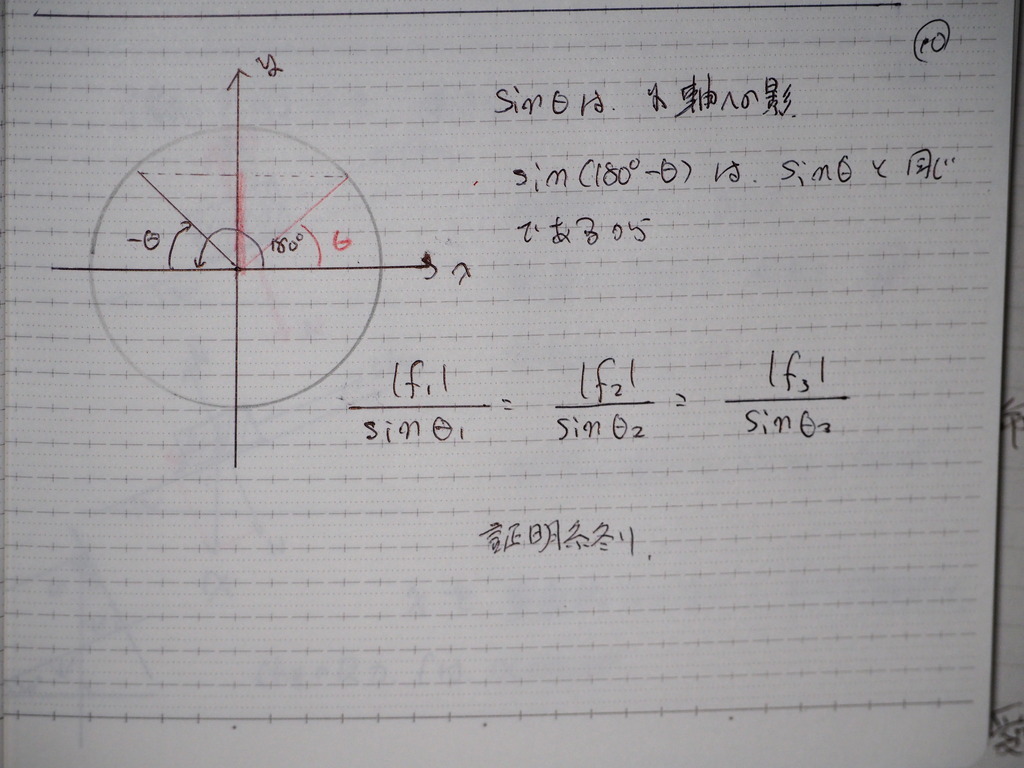 ⑩
y
sinθは、y軸への影
sin(180°-θ)は、sinθと同じ
であるから
-θ 180° θ
x
|f₁|/sinθ₁ = |f₂|/sinθ₂ = |f₃|/sinθ₃
証明終り.